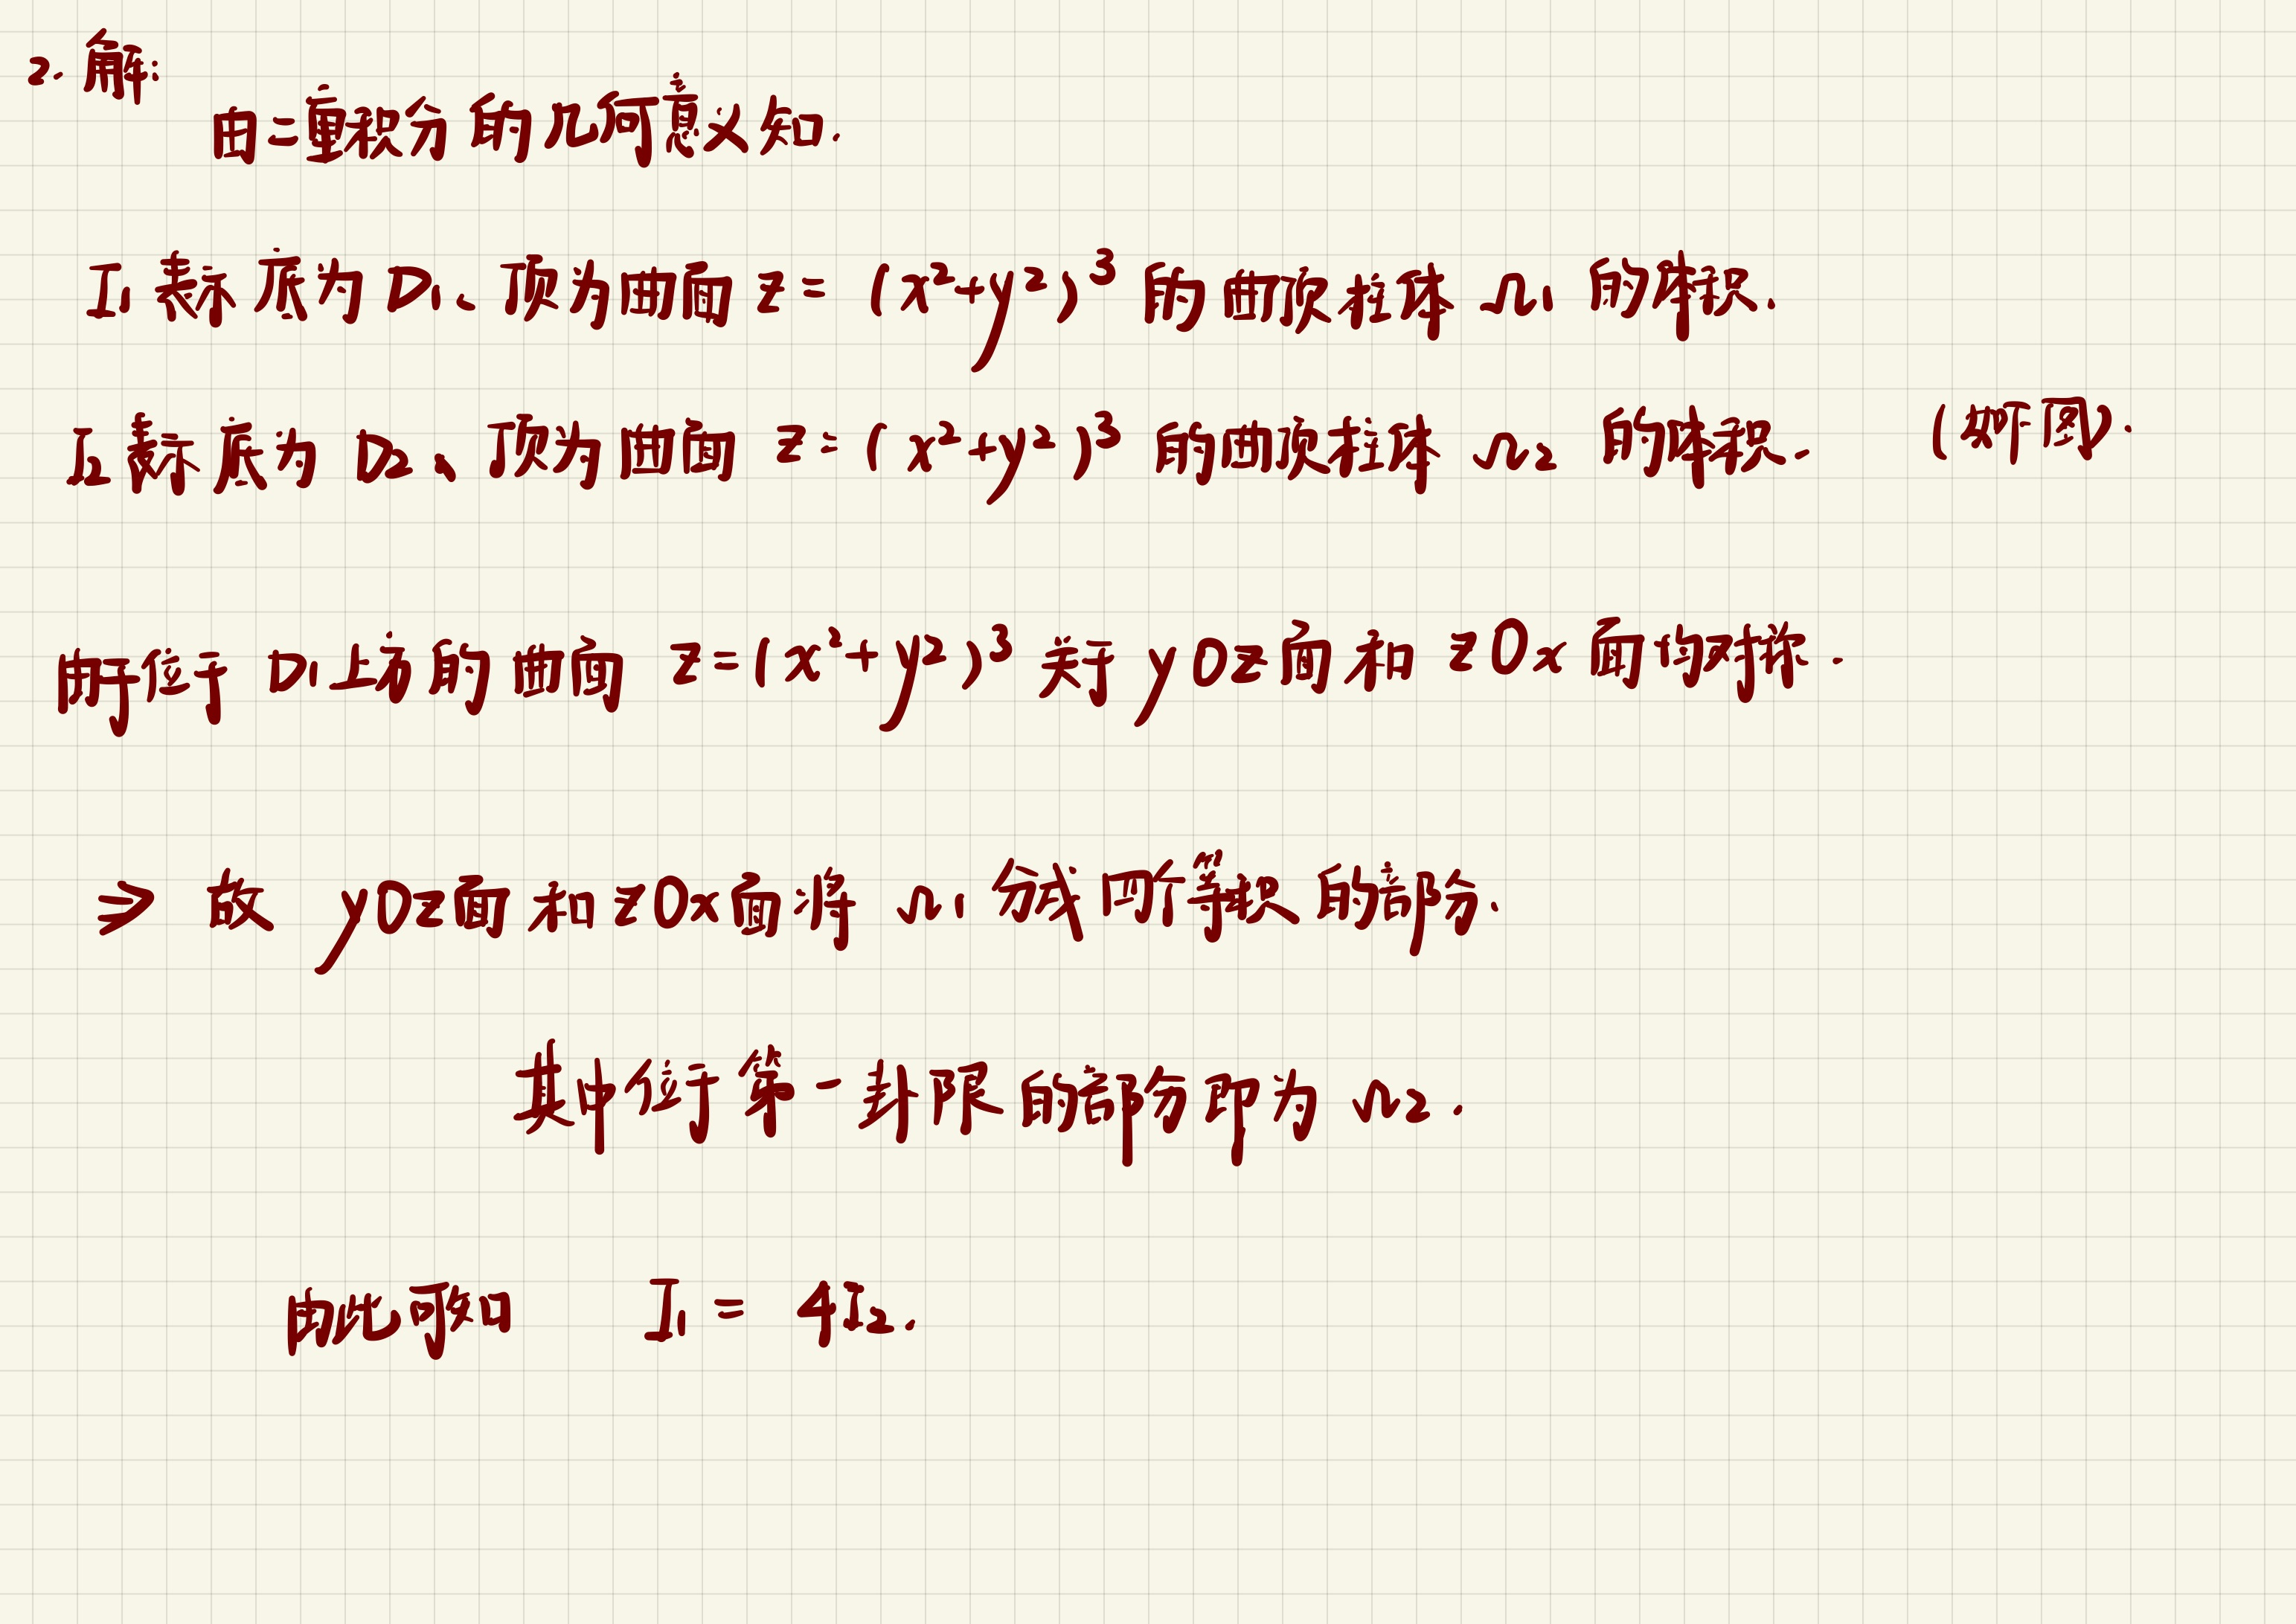 2. 解:
由二重积分的几何意义知.
I₁ 表示底为 D₁、顶为曲面 z = (x²+y²)³ 的曲顶柱体 Ω₁ 的体积.
I₂ 表示底为 D₂、顶为曲面 z = (x²+y²)³ 的曲顶柱体 Ω₂ 的体积. (如下图).
由于位于 D₁ 上方的曲面 z=(x²+y²)³ 关于 yOz面和 zOx 面均对称.
⇒ 故 yOz面和 zOx面将 Ω₁ 分成四个等积的部分.
其中位于第一卦限的部分即为 Ω₂.
由此可知 I₁ = 4I₂.